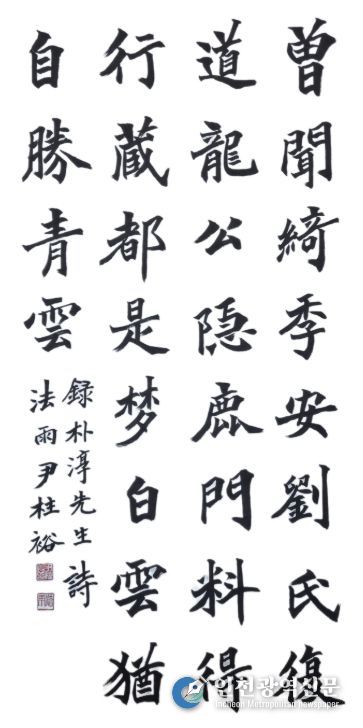 曾聞綺季安劉氏復
道龍公隐鹿門料得
行藏都是梦白雲猶
自勝青雲
録朴淳先生詩
法雨尹柱裕
인천광역신문
Incheon Metropolitan newspaper